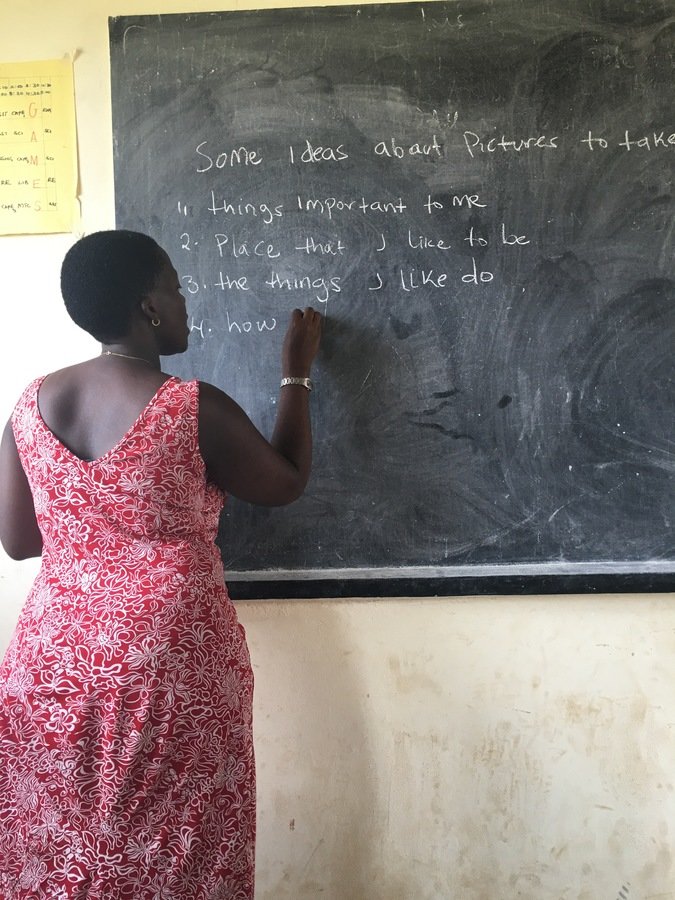 Some Ideas about Pictures to take
1. things important to me
2. Place that I like to be
3. the things I like do
4. how
GAMES